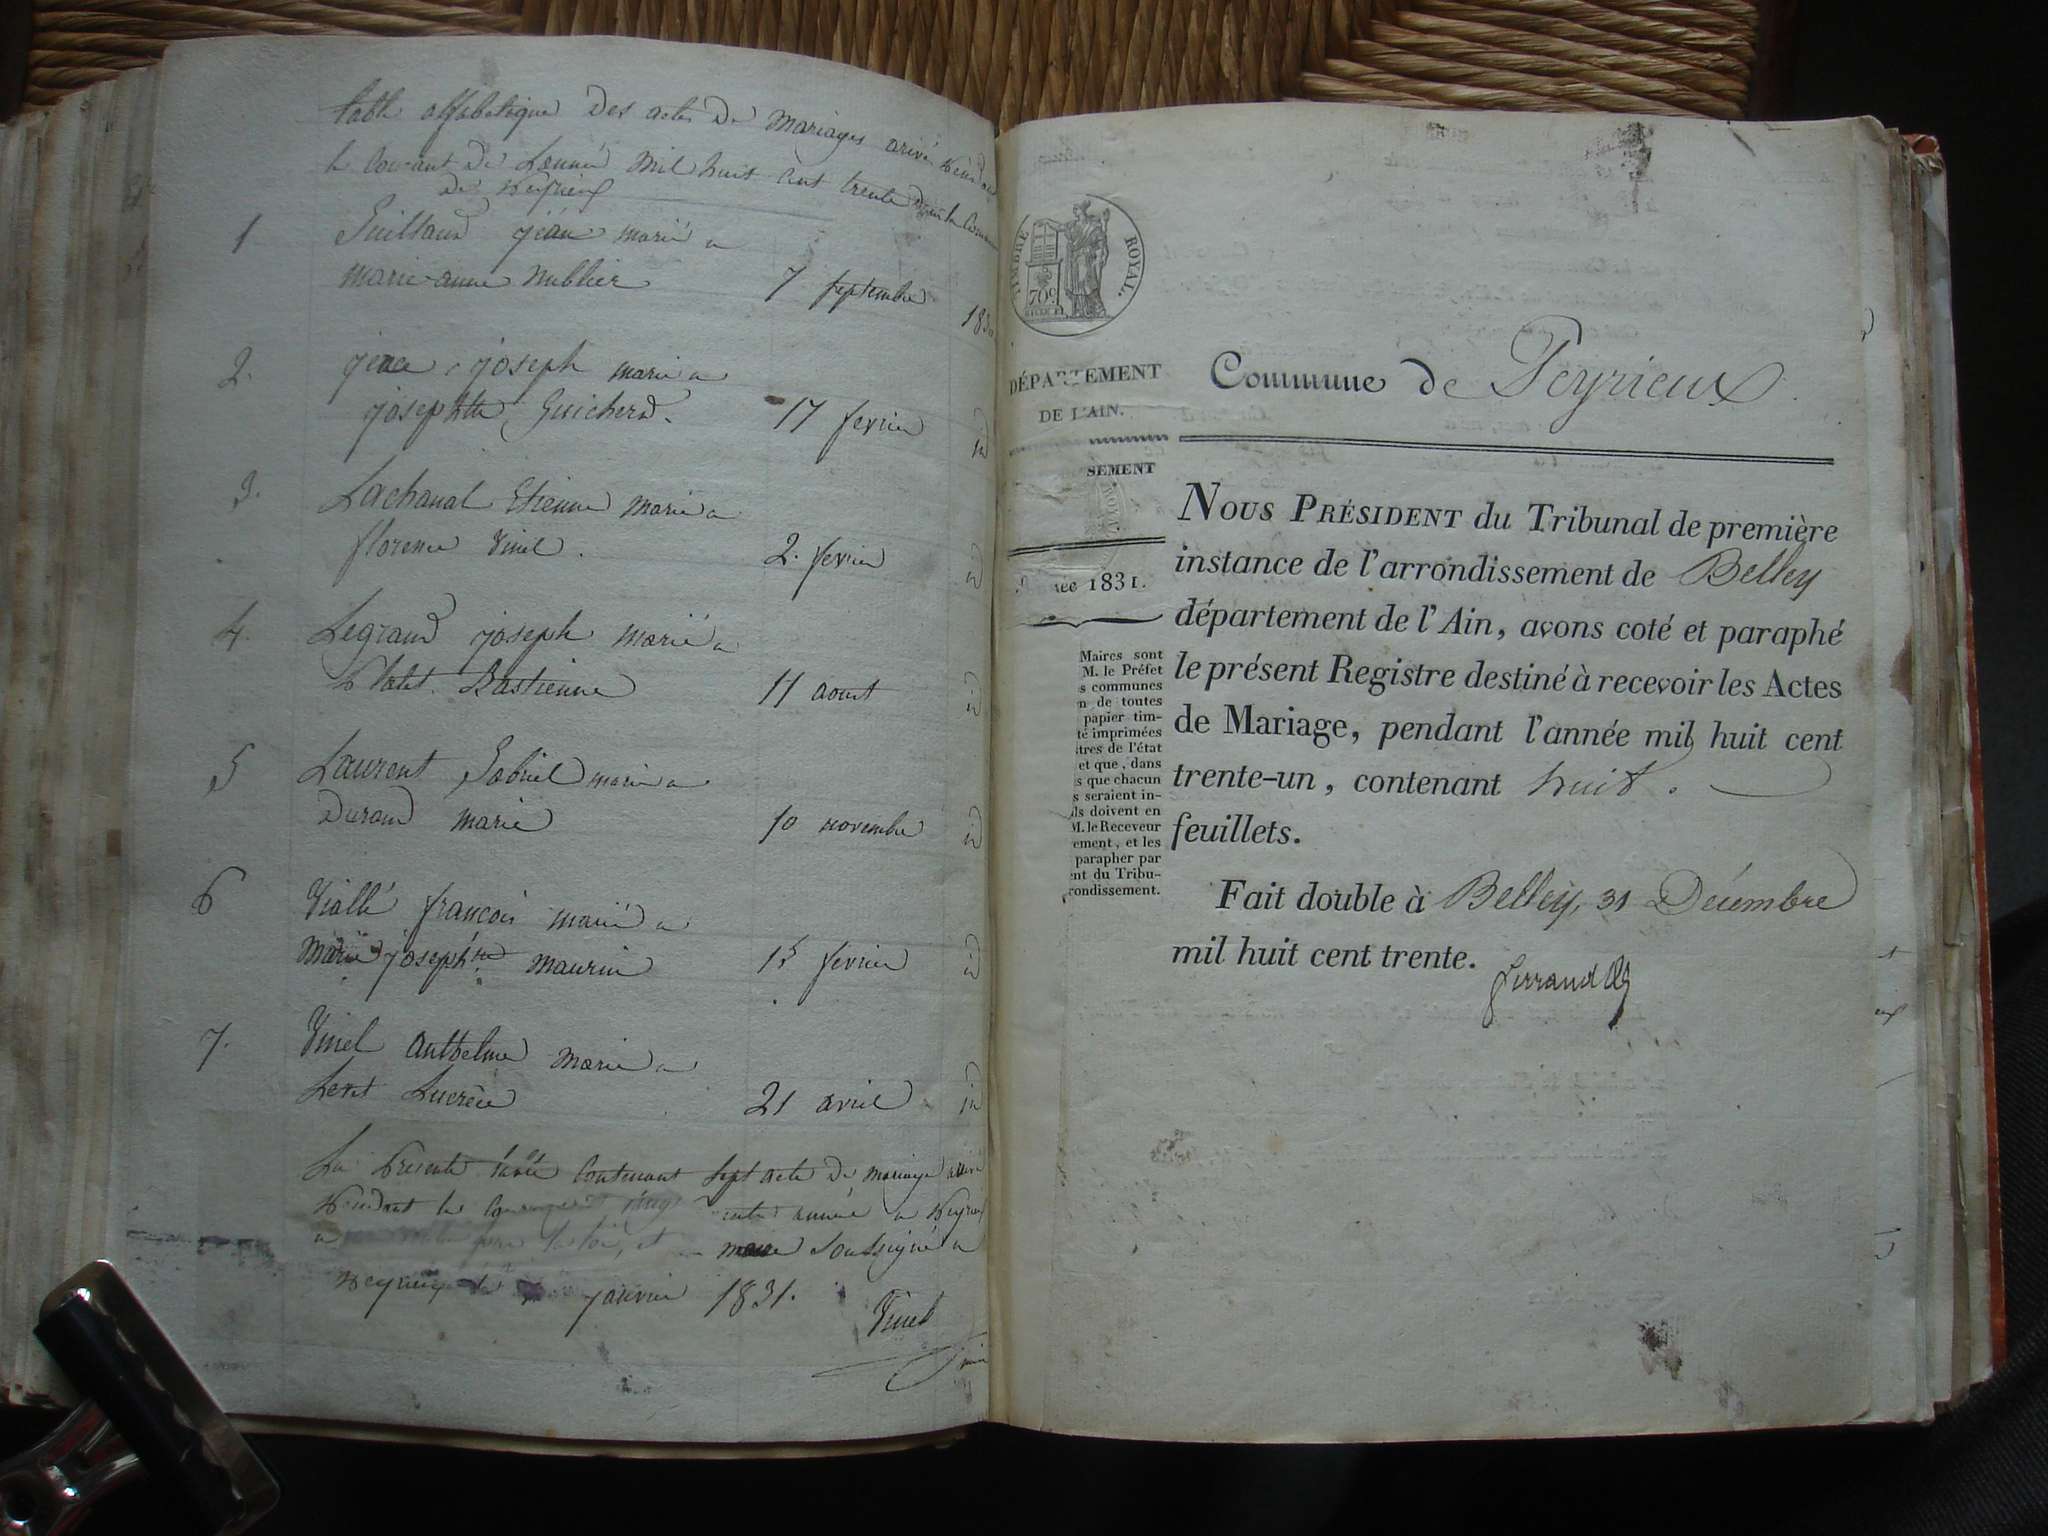 table alfabetique des actes de mariages arivé
le courant de Lannée mil huit cent trente dans la
de Peyrieux
1 Guilland jean marié a
marie-anne nublier 7 septembre 1830
2. jean joseph marié a
josephte Guicherd. 17 fevrier id
3. Lachanal Etienne marié a
florence Vinel. 2. fevrier id
4. Legrand joseph marié a
Bastienne 11 aout id
5 Laurent Gabriel marié a
Durand marie 10 novembre id
6 Viallé françois marié a
marie josephte maurin 15 fevrier id
7. Vinel anthelme marié a
Lucrèce 21 avril id
La présente table contenant sept acte de mariage
pendant le année a Peyrieux
a par la loi, et soussigné a
Peyrieux le janvier 1831.
Vinel
TIMBRE ROYAL.
70c
DÉPARTEMENT
DE L'AIN.
SEMENT
1831.
Maires sont
M. le Préfet
s communes
n de toutes
papier tim-
té imprimées
tres de l'état
et que, dans
s que chacun
s seraient in-
ils doivent en
M. le Receveur
ement, et les
parapher par
ent du Tribu-
rondissement.
Commune de Peyrieux
NOUS PRÉSIDENT du Tribunal de première
instance de l'arrondissement de Belley
département de l'Ain, avons coté et paraphé
le présent Registre destiné à recevoir les Actes
de Mariage, pendant l'année mil huit cent
trente-un, contenant huit.
feuillets.
Fait double à Belley, 31 Décembre
mil huit cent trente.